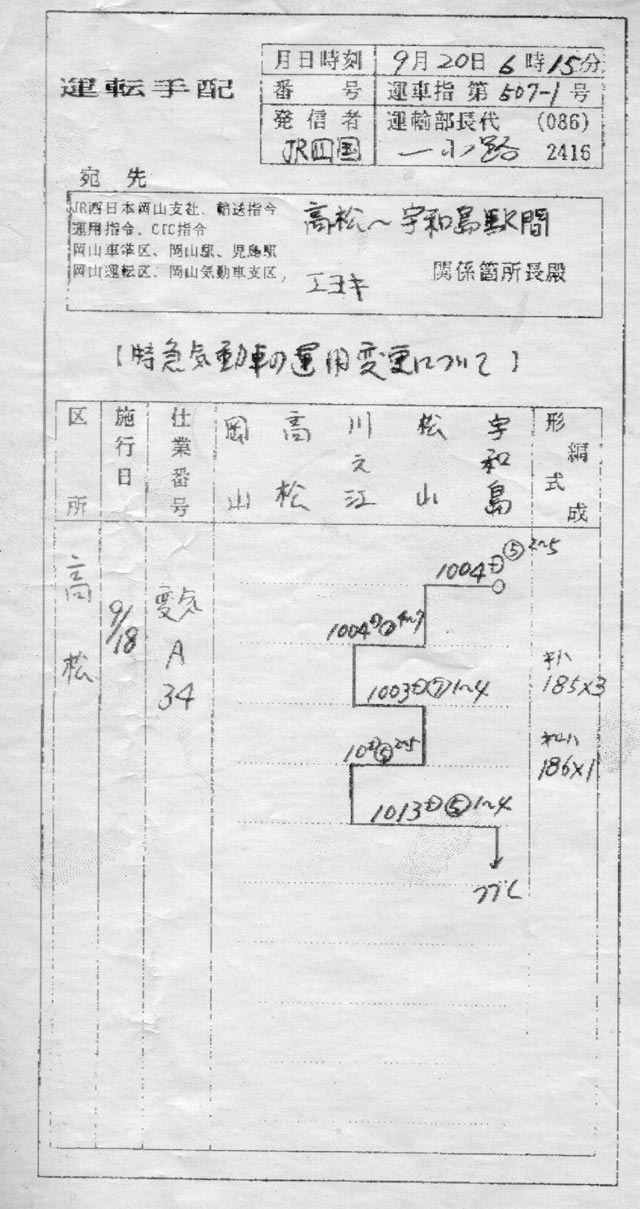 運転手配
月日時刻 9月20日6時15分
番号 運車指 第507-1号
発信者 運輸部長代 (086)
JR四国 2416
宛先
JR西日本岡山支社、輸送指令
運用指令、CTC指令
岡山車掌区、岡山駅、児島駅
岡山運転区、岡山気動車支区,
高松〜宇和島駅間
関係箇所長殿
[特急気動車の運用変更について]
区所 施行日 仕業番号 岡山 高松 川之江 松山 宇和島 形式 編成
高松
9/18
変気
A
34
1004 ⑤ 2〜5
1004
1003 1〜4
185×3
186×1
1013 ⑤ 1〜4
ツヅく